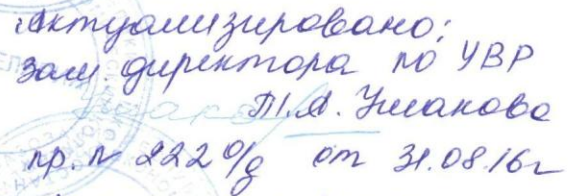 Актуализировано:
зам. директора по УВР
Т.А. Ушакова
пр. № 222 о/д от 31.08.16г